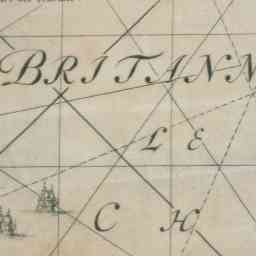 BRITANN
LE
CH